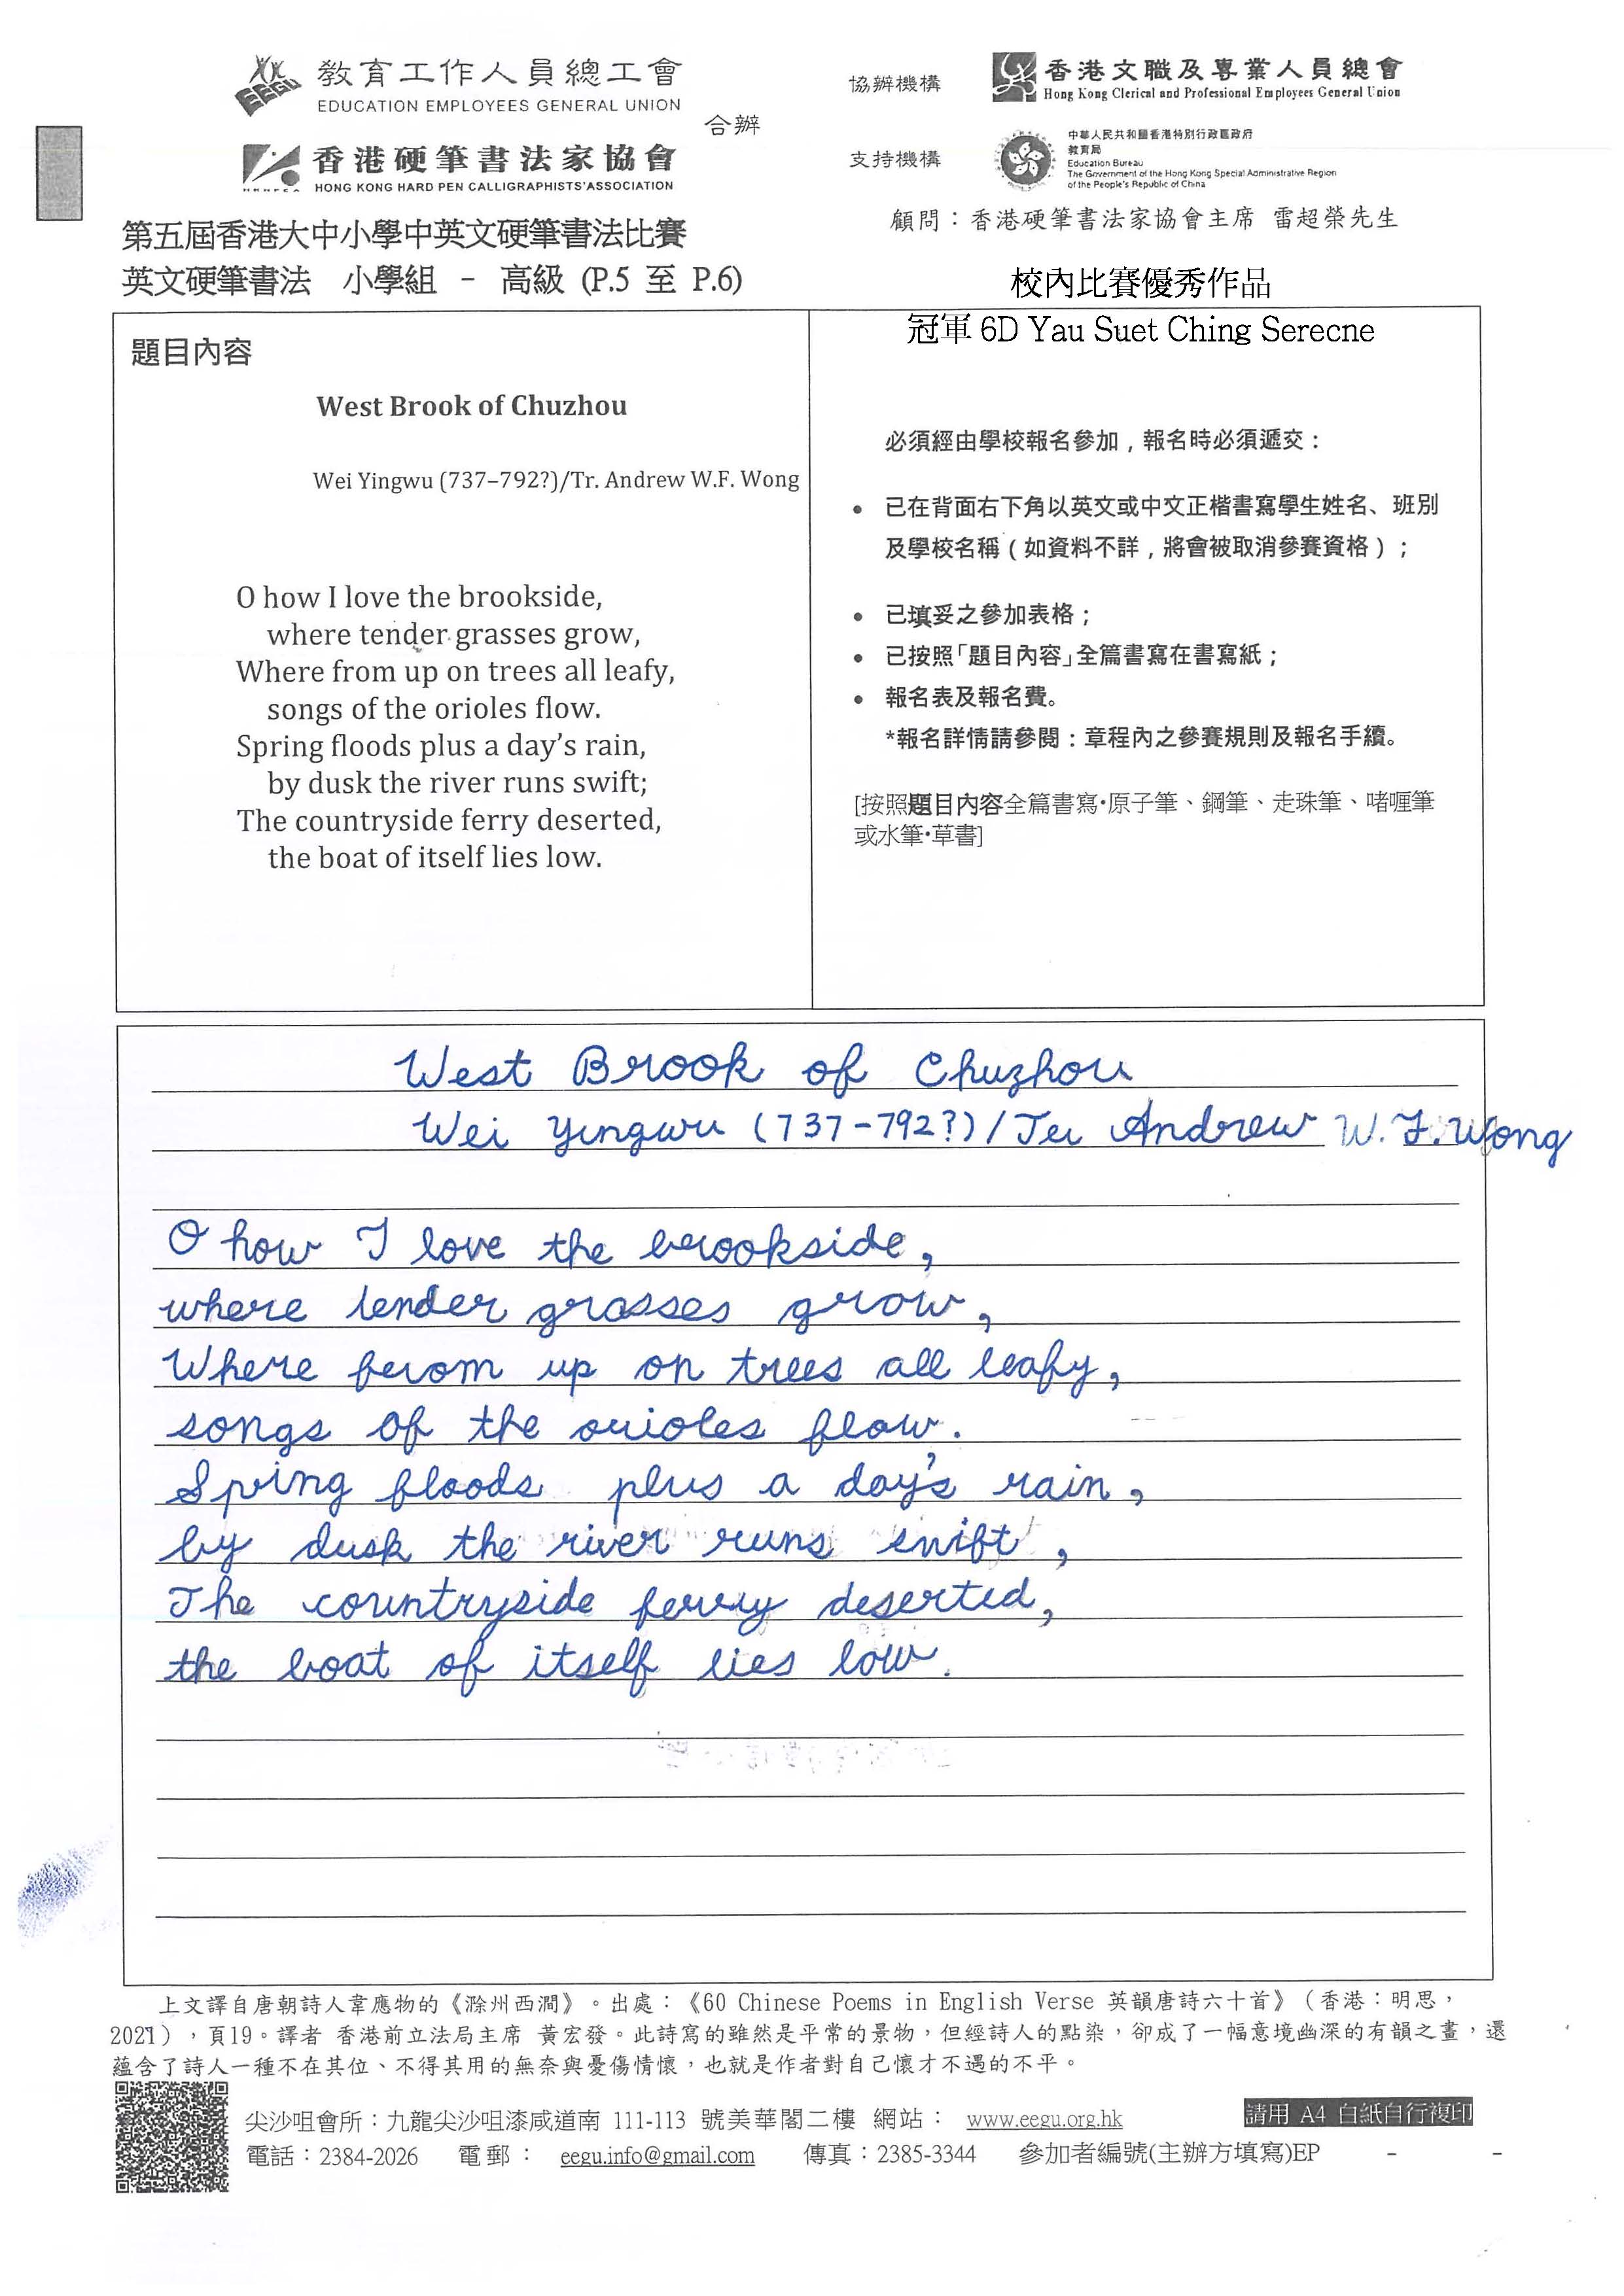 教育工作人員總工會
EDUCATION EMPLOYEES GENERAL UNION
合辦
香港硬筆書法家協會
HONG KONG HARD PEN CALLIGRAPHISTS'ASSOCIATION
協辦機構
香港文職及專業人員總會
Hong Kong Clerical and Professional Employees General Union
支持機構
中華人民共和國香港特別行政區政府
教育局
Education Bureau
The Government of the Hong Kong Special Administrative Region
of the People's Republic of China
顧問：香港硬筆書法家協會主席 雷超榮先生
第五屆香港大中小學中英文硬筆書法比賽
英文硬筆書法 小學組 - 高級 (P.5 至 P.6)
校內比賽優秀作品
冠軍 6D Yau Suet Ching Serecne
題目內容
West Brook of Chuzhou
Wei Yingwu (737–792?)/Tr. Andrew W.F. Wong
O how I love the brookside,
where tender grasses grow,
Where from up on trees all leafy,
songs of the orioles flow.
Spring floods plus a day's rain,
by dusk the river runs swift;
The countryside ferry deserted,
the boat of itself lies low.
必須經由學校報名參加，報名時必須遞交：
• 已在背面右下角以英文或中文正楷書寫學生姓名、班別
及學校名稱（如資料不詳，將會被取消參賽資格）；
• 已填妥之參加表格；
• 已按照「題目內容」全篇書寫在書寫紙；
• 報名表及報名費。
*報名詳情請參閱：章程內之參賽規則及報名手續。
[按照題目內容全篇書寫•原子筆、鋼筆、走珠筆、啫喱筆
或水筆•草書]
West Brook of Chuzhou
Wei Yingwu (737-792?)/Tr Andrew W.F.Wong
O how I love the brookside,
where tender grasses grow,
Where from up on trees all leafy,
songs of the orioles flow.
Spring floods plus a day's rain,
by dusk the river runs swift,
The countryside ferry deserted,
the boat of itself lies low.
上文譯自唐朝詩人韋應物的《滁州西澗》。出處：《60 Chinese Poems in English Verse 英韻唐詩六十首》（香港：明思，
2021），頁19。譯者 香港前立法局主席 黃宏發。此詩寫的雖然是平常的景物，但經詩人的點染，卻成了一幅意境幽深的有韻之畫，還
蘊含了詩人一種不在其位、不得其用的無奈與憂傷情懷，也就是作者對自己懷才不遇的不平。
尖沙咀會所：九龍尖沙咀漆咸道南 111-113 號美華閣二樓 網站： www.eegu.org.hk
請用 A4 白紙自行複印
電話：2384-2026 電郵： eegu.info@gmail.com 傳真：2385-3344 參加者編號(主辦方填寫)EP - -